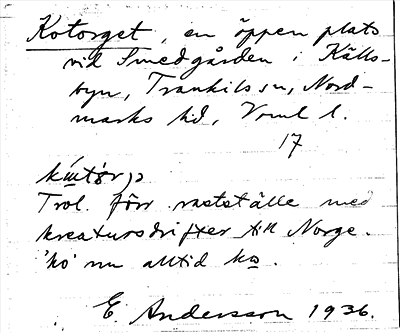 Kotorget, en öppen plats
vid Smedgården i Källs-
byn, Trankils sn, Nord-
marks hd, Vrml l.
17
Trol. förr rastställe med
kreatursdrifter till Norge.
'ko' nu alltid ko.
E. Andersson 1936.